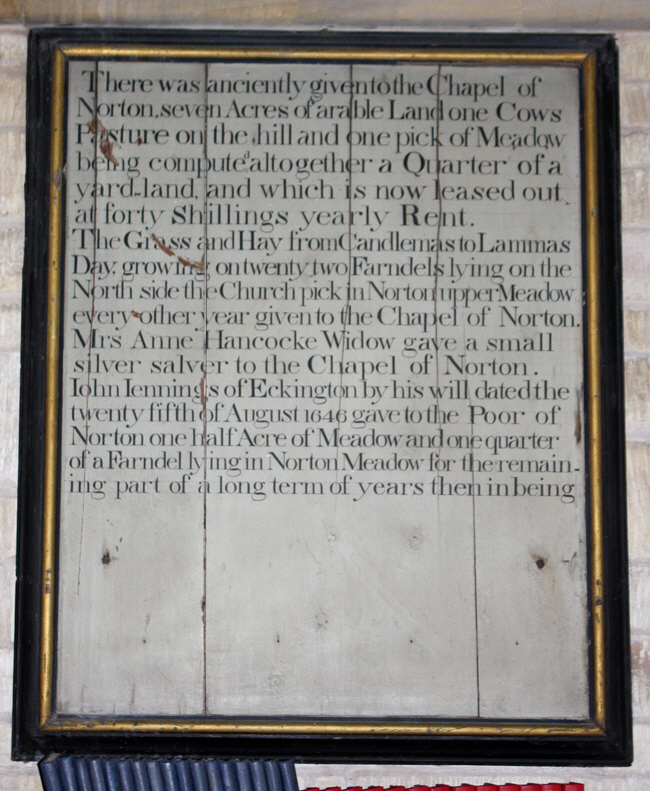 There was anciently given to the Chapel of
Norton, seven Acres of arable Land one Cows
Pasture on the hill and one pick of Meadow
being compute'd altogether a Quarter of a
yard-land, and which is now leased out
at forty Shillings yearly Rent.
The Grass and Hay from Candlemas to Lammas
Day, growing on twenty two Farndels lying on the
North side the Church pick in Norton upper Meadow
every other year given to the Chapel of Norton.
Mrs Anne Hancocke Widow gave a small
silver salver to the Chapel of Norton.
Iohn Iennings of Eckington by his will dated the
twenty fifth of August 1646 gave to the Poor of
Norton one half Acre of Meadow and one quarter
of a Farndel lying in Norton Meadow for the remain-
ing part of a long term of years then in being